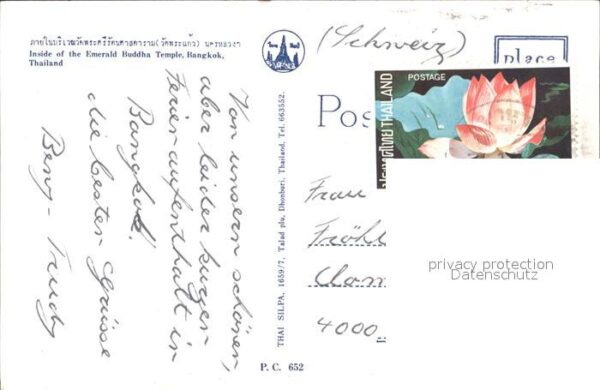 ภายในบริเวณวัดพระศรีรัตนศาสดาราม (วัดพระแก้ว) นครหลวงฯ
Inside of the Emerald Buddha Temple, Bangkok,
Thailand
Von unsern schönen,
aber leider kurzen
Ferienaufenthalt in
Bangkok.
die besten Grüsse
Beny - Trudy
THAI SILPA, 1659/7, Talad plu, Dhonburi, Thailand, Tel. 663552.
P. C. 652
(Schweiz)
place
POSTAGE
ประเทศไทย THAILAND
Pos
Frau
Fröhl
4000
privacy protection
Datenschutz